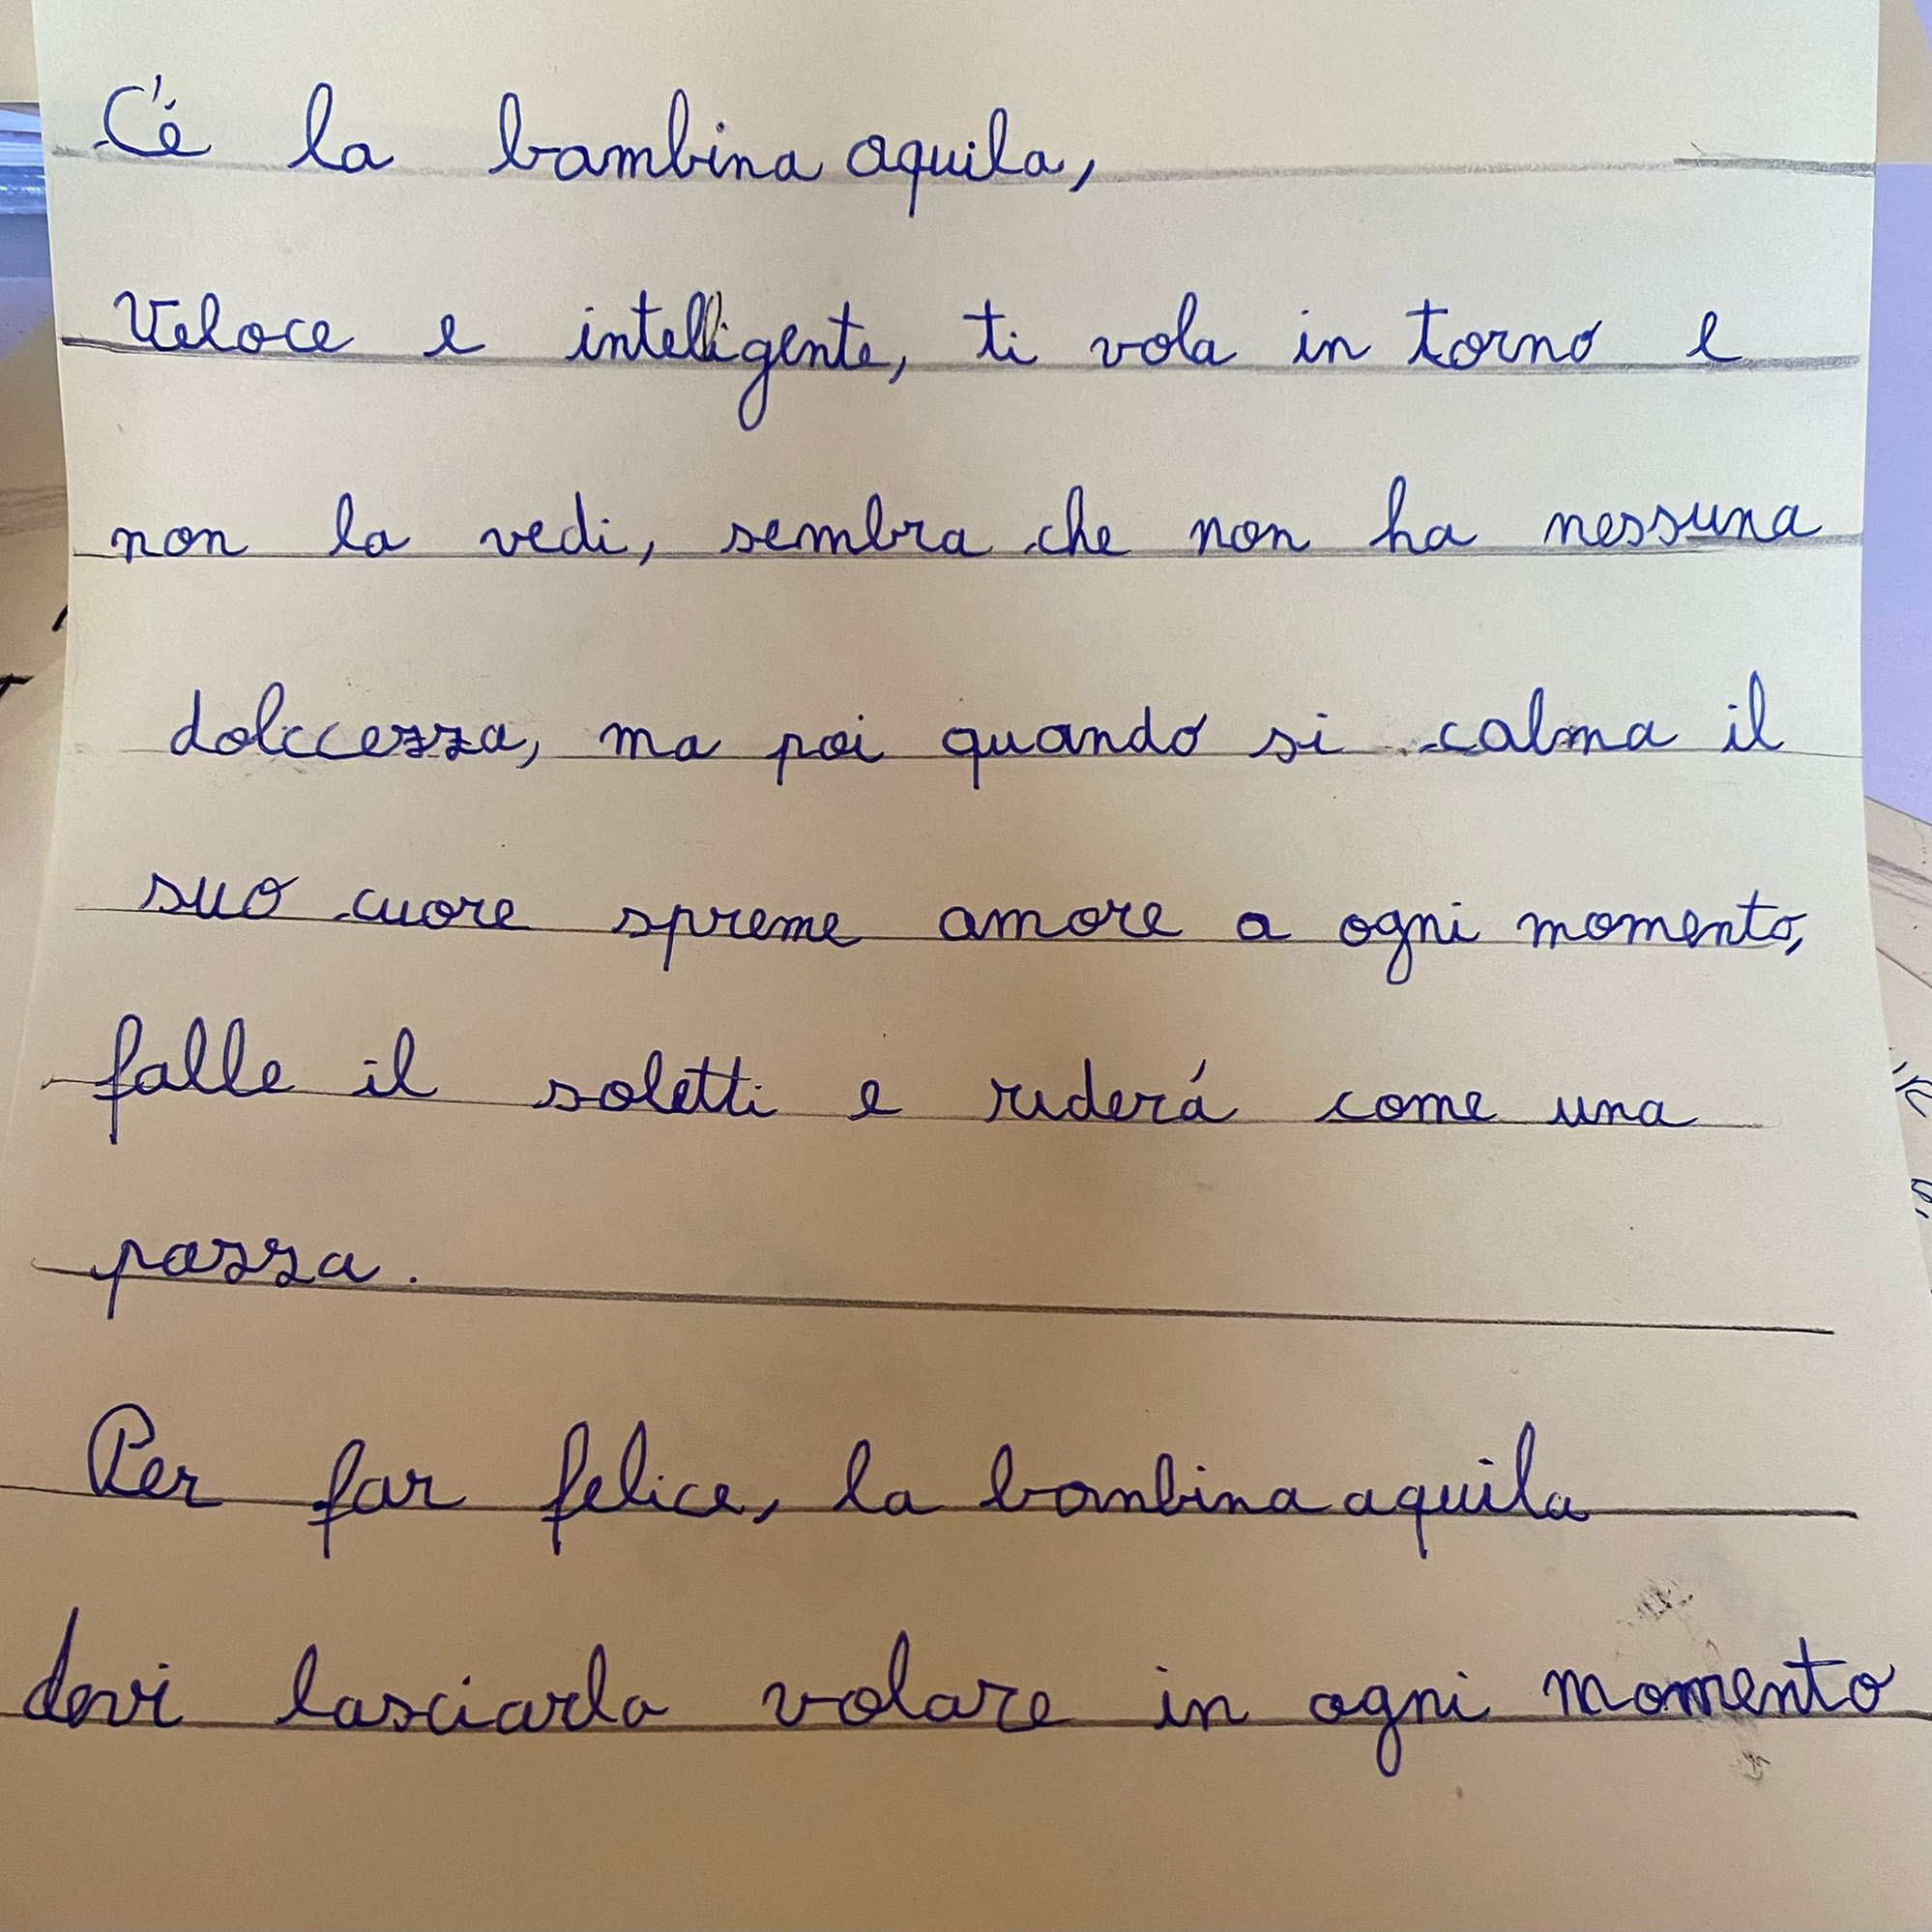 C'é la bambina aquila,
Veloce e intelligente, ti vola in torno e
non la vedi, sembra che non ha nessuna
dolccezza, ma poi quando si calma il
suo cuore spreme amore a ogni momento,
falle il soletti e riderá come una
pazza.
Per far felice, la bambina aquila
devi lasciarla volare in ogni momento